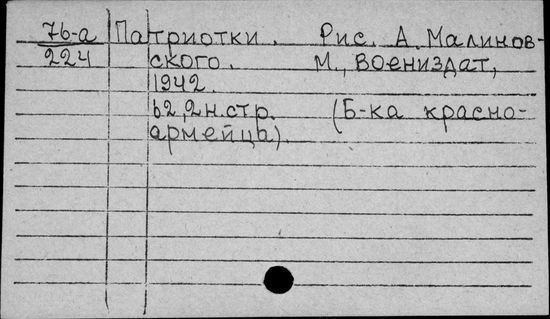 76-а Патриотки. Рис. А. Малинов-
224 ского. М., Воениздат,
1942.
62,2н.стр. (Б-ка красно-
армейца).